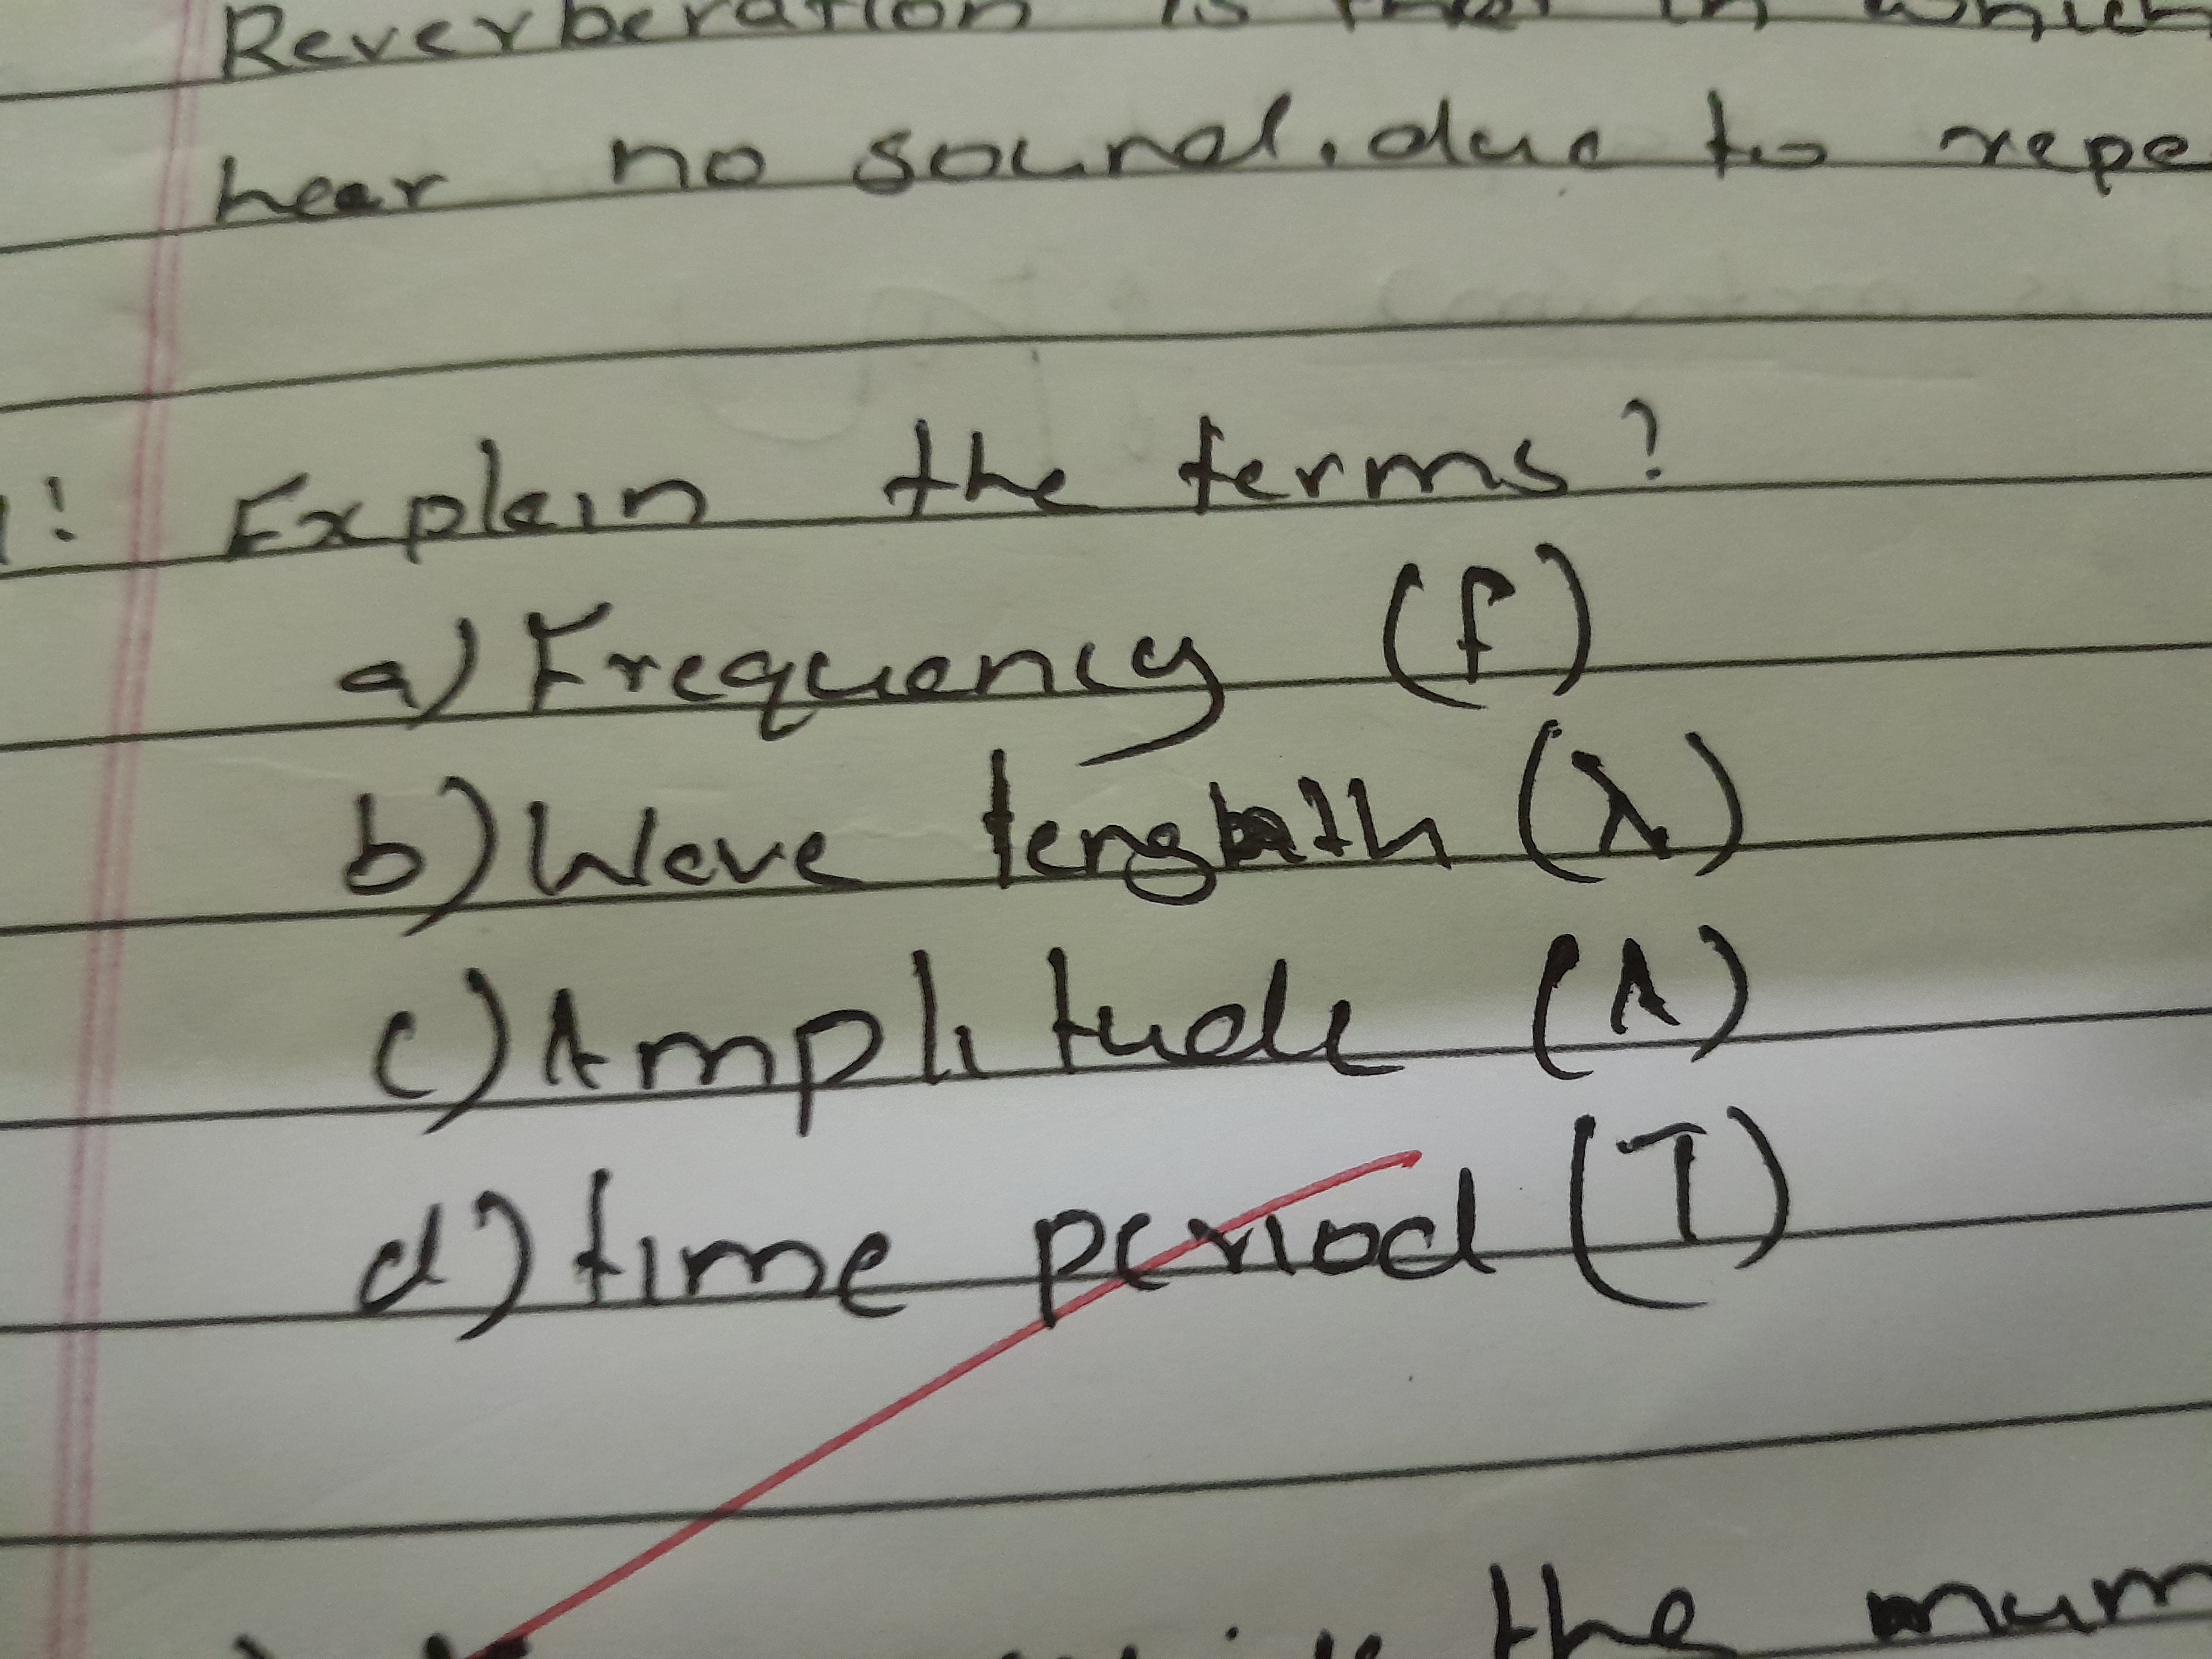 Reverberation is that in which
hear no sound. due to repe
! Explain the terms?
a) Frequency (f)
b) Wave length (λ)
c) Amplitude (A)
d) time period (T)
the num